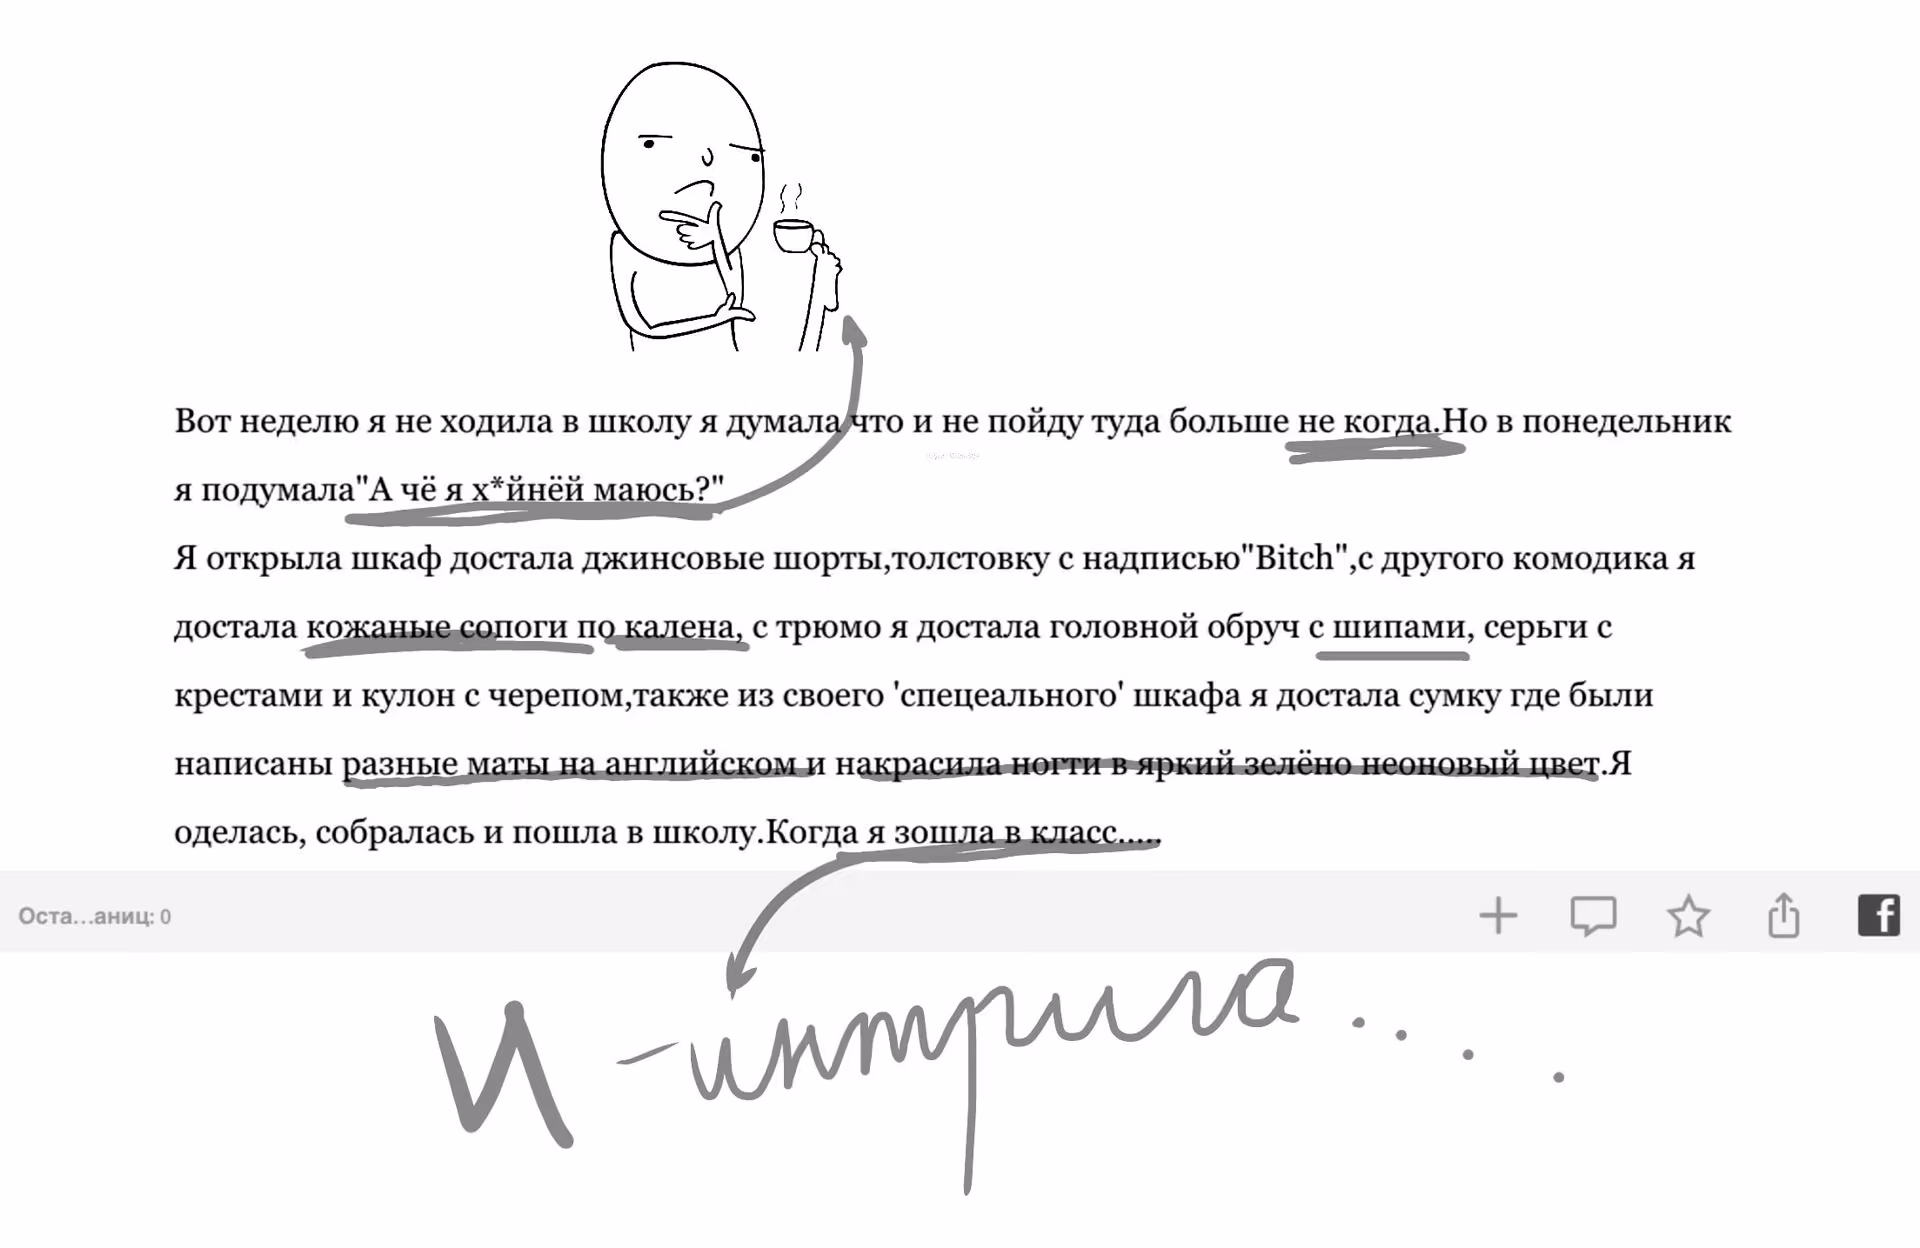 Вот неделю я не ходила в школу я думала что и не пойду туда больше не когда.Но в понедельник
я подумала"А чё я х*йнёй маюсь?"
Я открыла шкаф достала джинсовые шорты,толстовку с надписью"Bitch",с другого комодика я
достала кожаные сопоги по калена, с трюмо я достала головной обруч с шипами, серьги с
крестами и кулон с черепом,также из своего 'спецеального' шкафа я достала сумку где были
написаны разные маты на английском и накрасила ногти в яркий зелёно неоновый цвет.Я
оделась, собралась и пошла в школу.Когда я зошла в класс.....
Оста...аниц: 0
И - интрига....